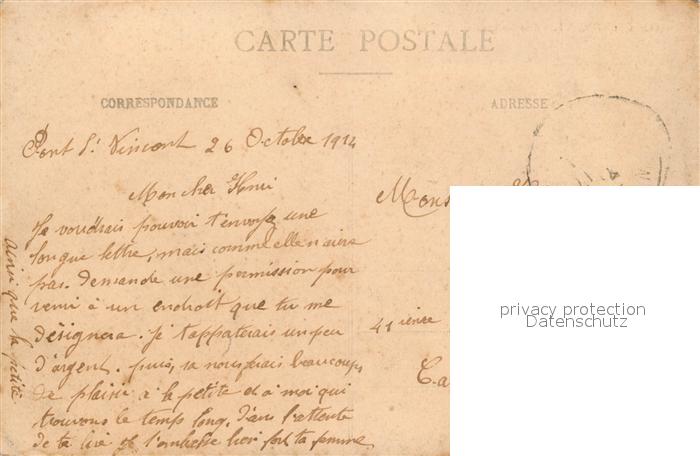 CARTE POSTALE
CORRESPONDANCE
ADRESSE
Pont St Vincent 26 Octobre 1914
Mon cher Henri
Je voudrais pouvoir t'envoye une
longue lettre, mais comme elle n'aire
pas. Demande une permission pour
venir à un endroit que tu me
désignera. je t'apporterais un peu
d'argent. puis, sa nous ferais beaucoup
de plaisir a la petite et a moi qui
trouvons le temps long. Dans l'attente
de te lire je t'embrasse bien fort ta femme
ainsi que ta petite
Mons
41 ieme
privacy protection
Datenschutz